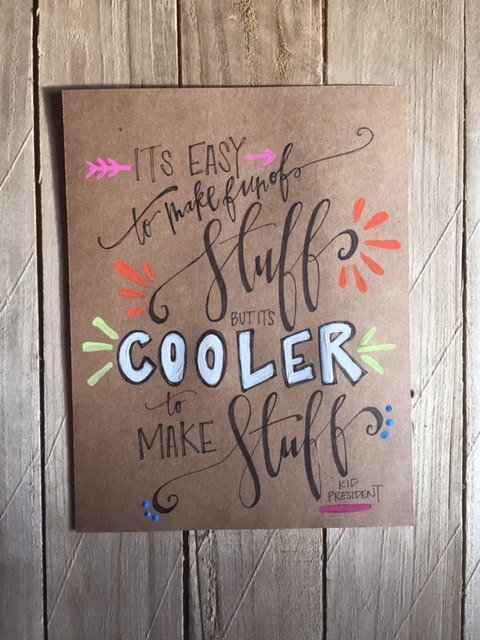 ITS EASY
to make fun of
Stuff
BUT ITS
COOLER
to
MAKE Stuff
KID
PRESIDENT